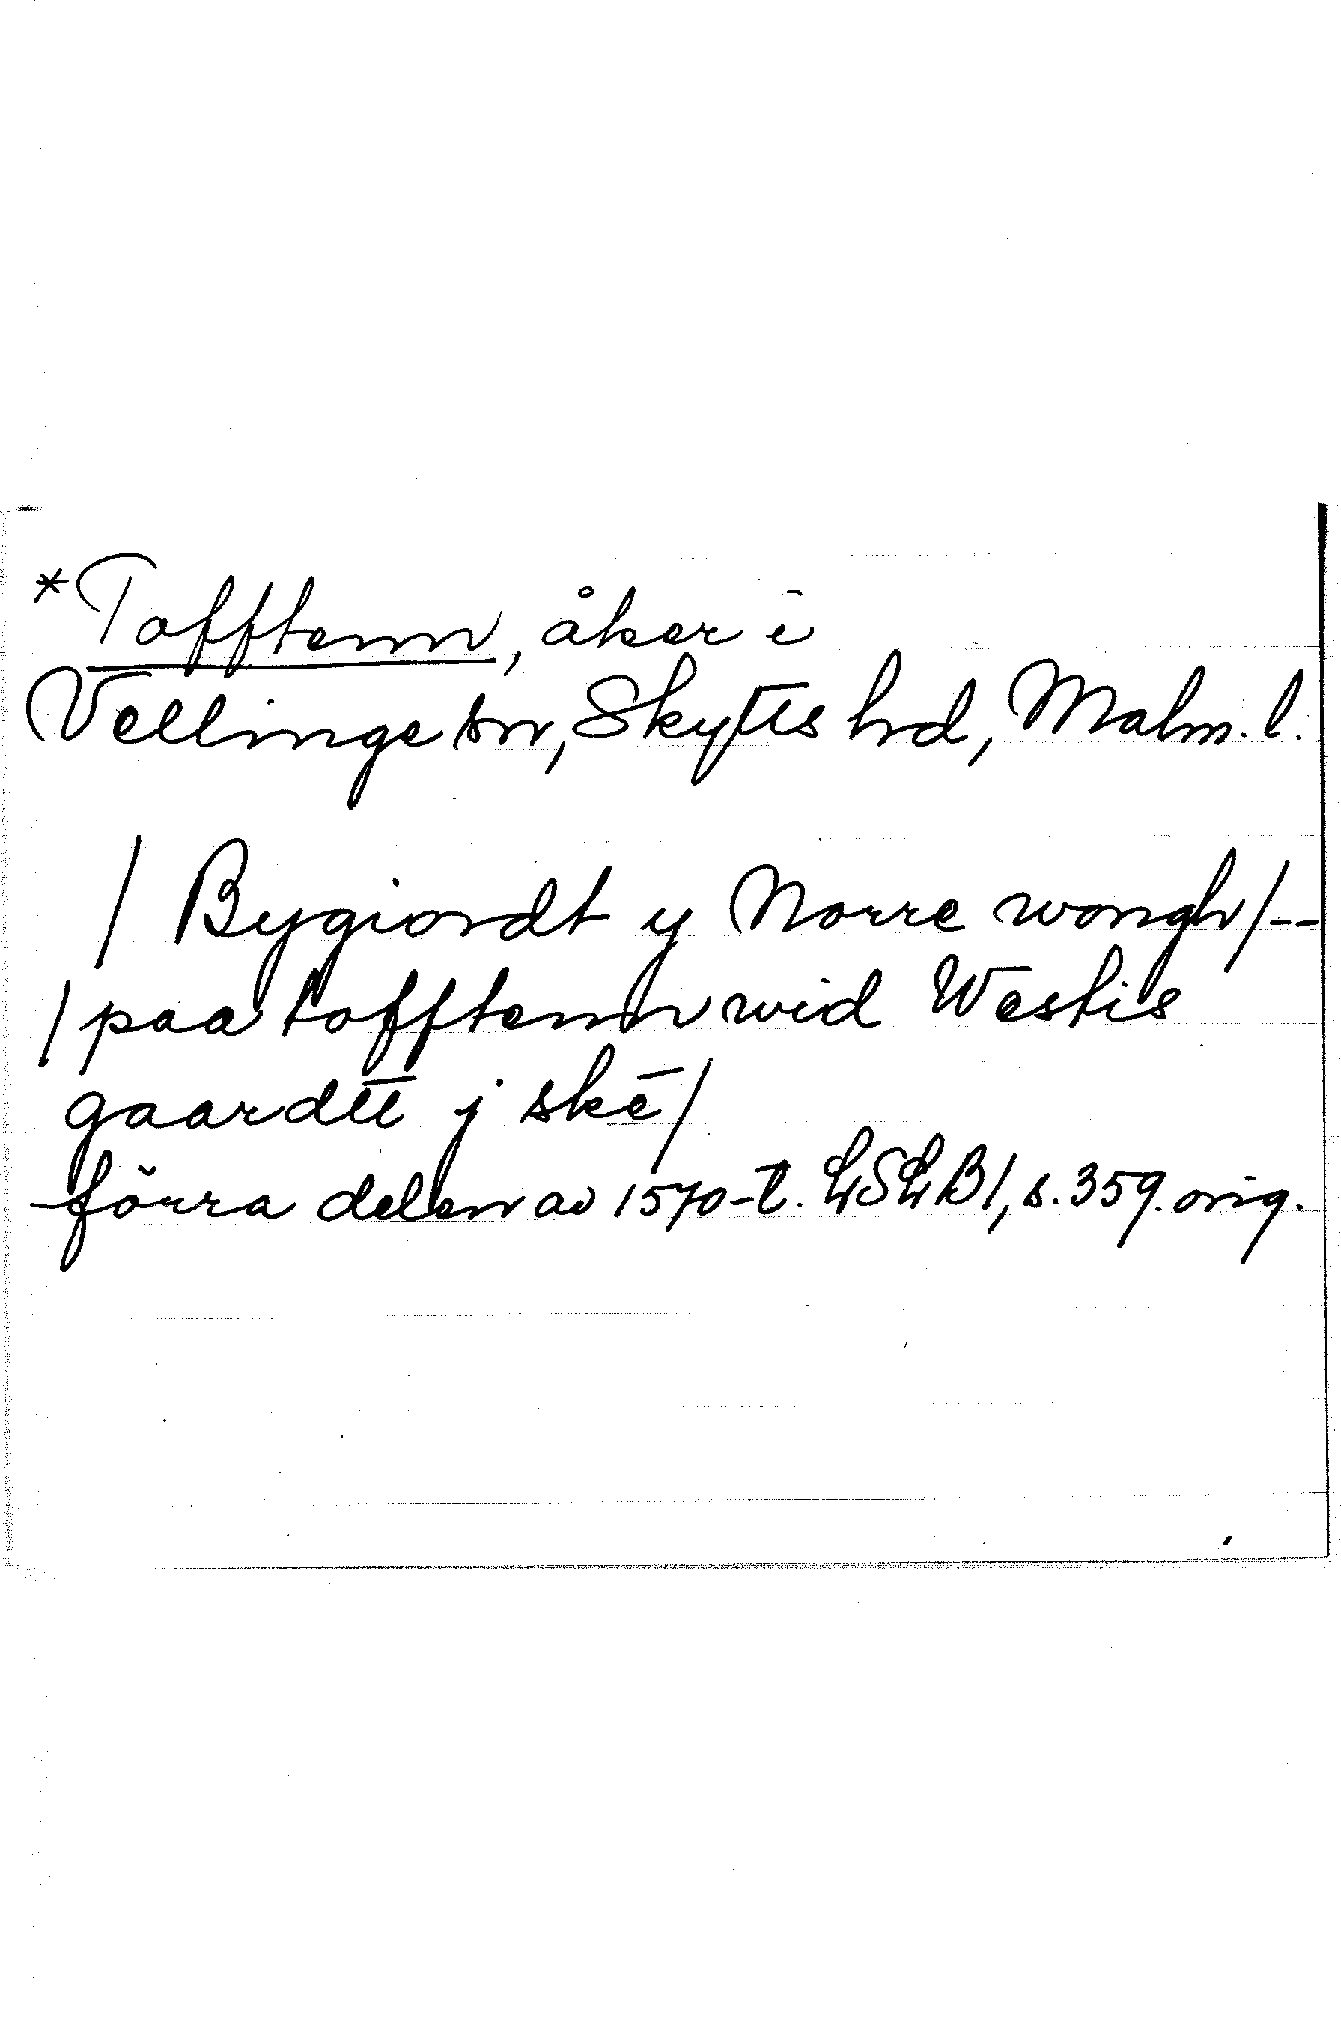 *Tofftenn, åker i
Vellinge sn, Skytts hd, Malm. l.
/ Bygiordt y Norre wongh/--
/paa tofftenn wid Westis
gaardtt j skē/
förra delen av 1570-t. LSLB1, s. 359. orig.